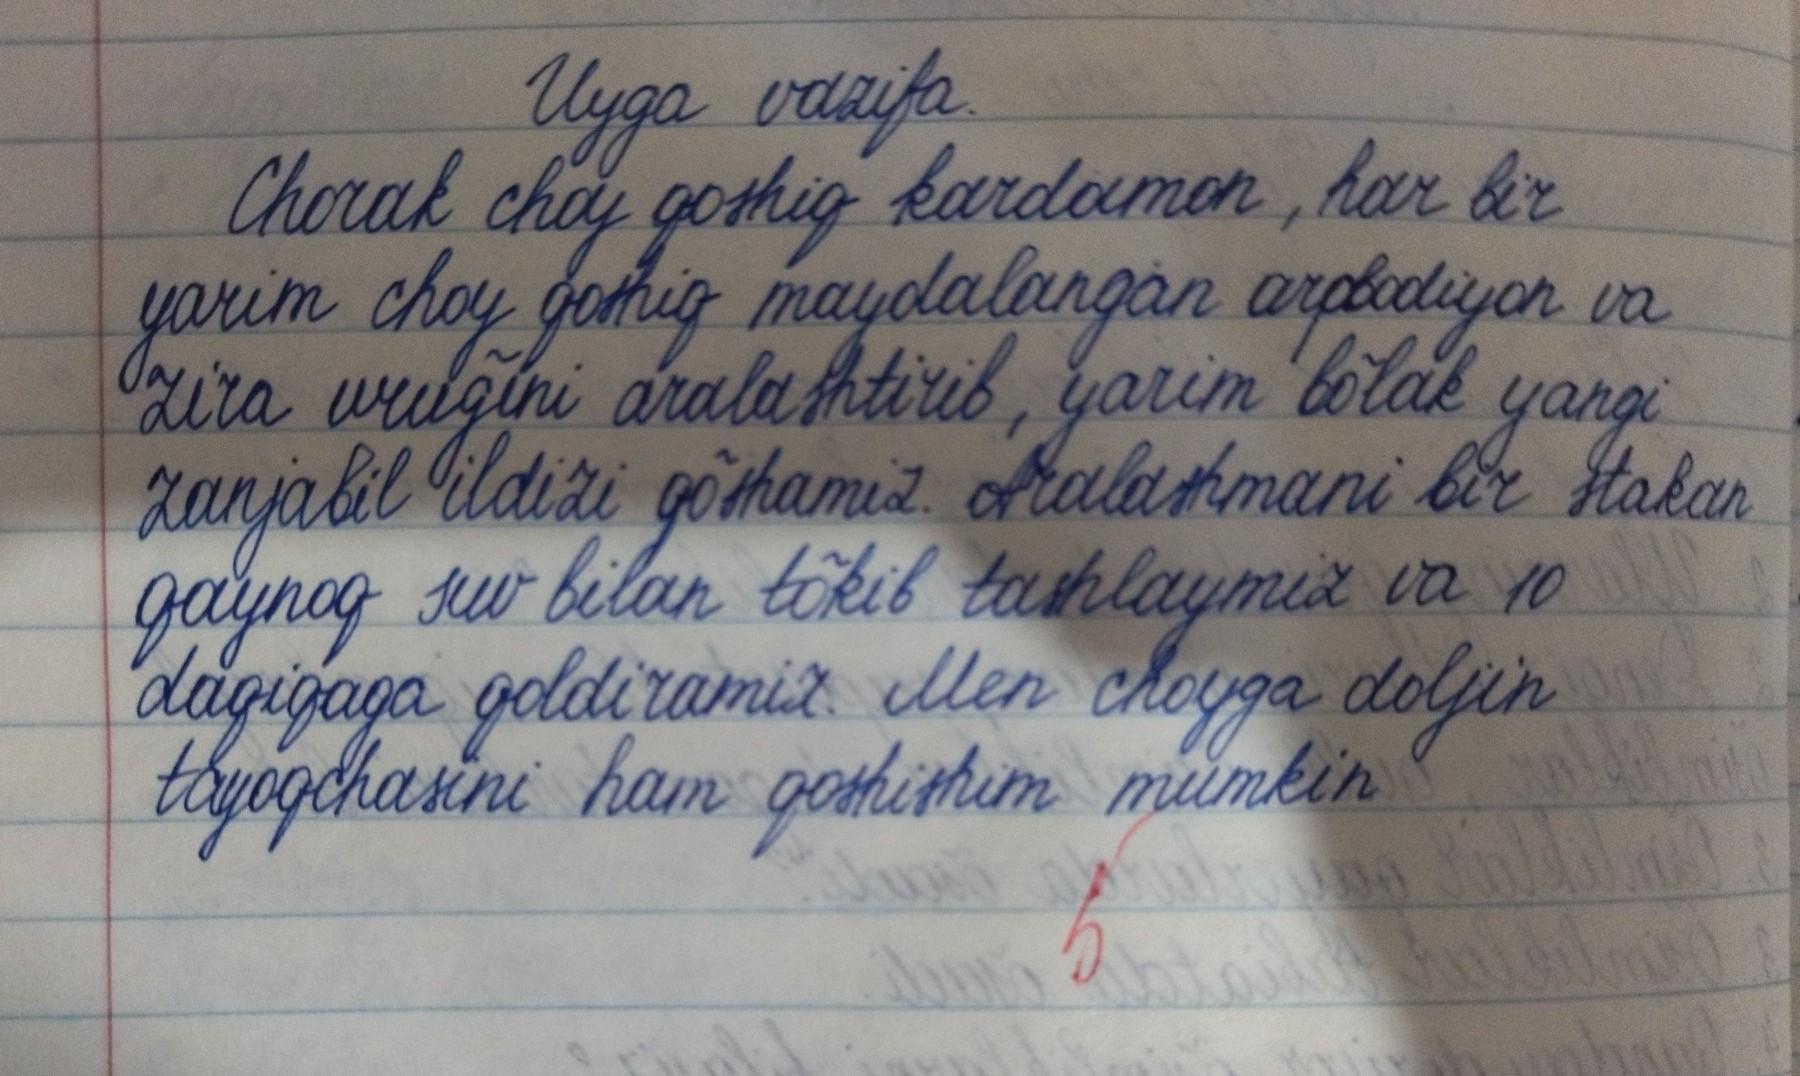 Uyga vazifa.
Chorak choy qoshiq kardamon, har bir
yarim choy qoshiq maydalangan arpbodiyon va
zira urug̃ini aralashtirib, yarim bõlak yangi
zanjabil ildizi qõshamiz. Aralashmani bir stakan
qaynoq suv bilan tõkib tashlaymiz va 10
daqiqaga qoldiramiz. Men choyga doljin
tayoqchasini ham qoshishim mumkin
5